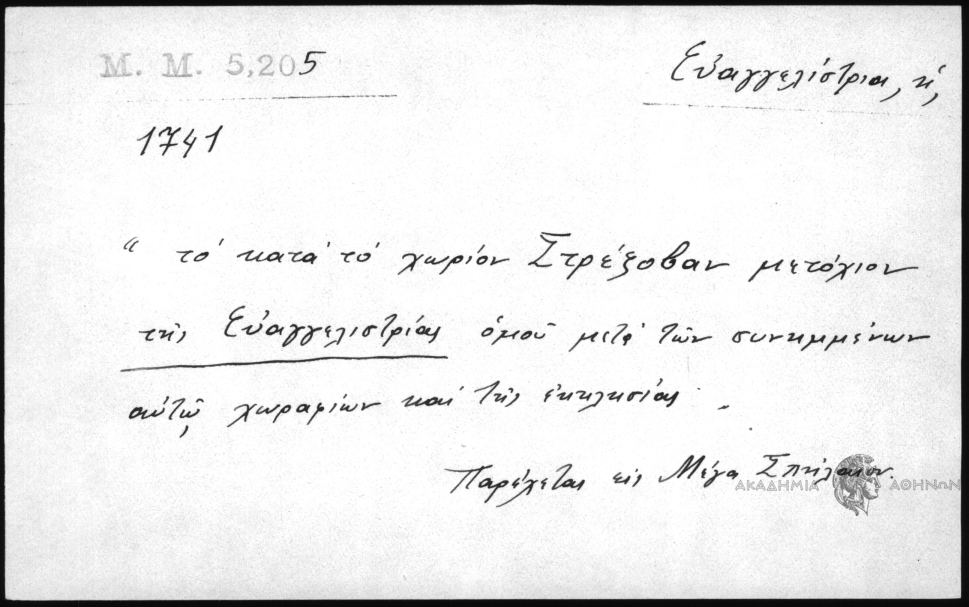 Μ. Μ. 5,205
Εὐαγγελίστρια, ἡ,
1741
“ τό κατά τό χωρίον Στρέζοβαν μετόχιον
τῆς Εὐαγγελιστρίας ὁμοῦ μετά τῶν συνημμένων
αὐτῷ χωραφίων καί τῆς ἐκκλησίας .
Παρέχεται εἰς Μέγα Σπήλαιον.
ΑΚΑΔΗΜΙΑ ΑΘΗΝΩΝ